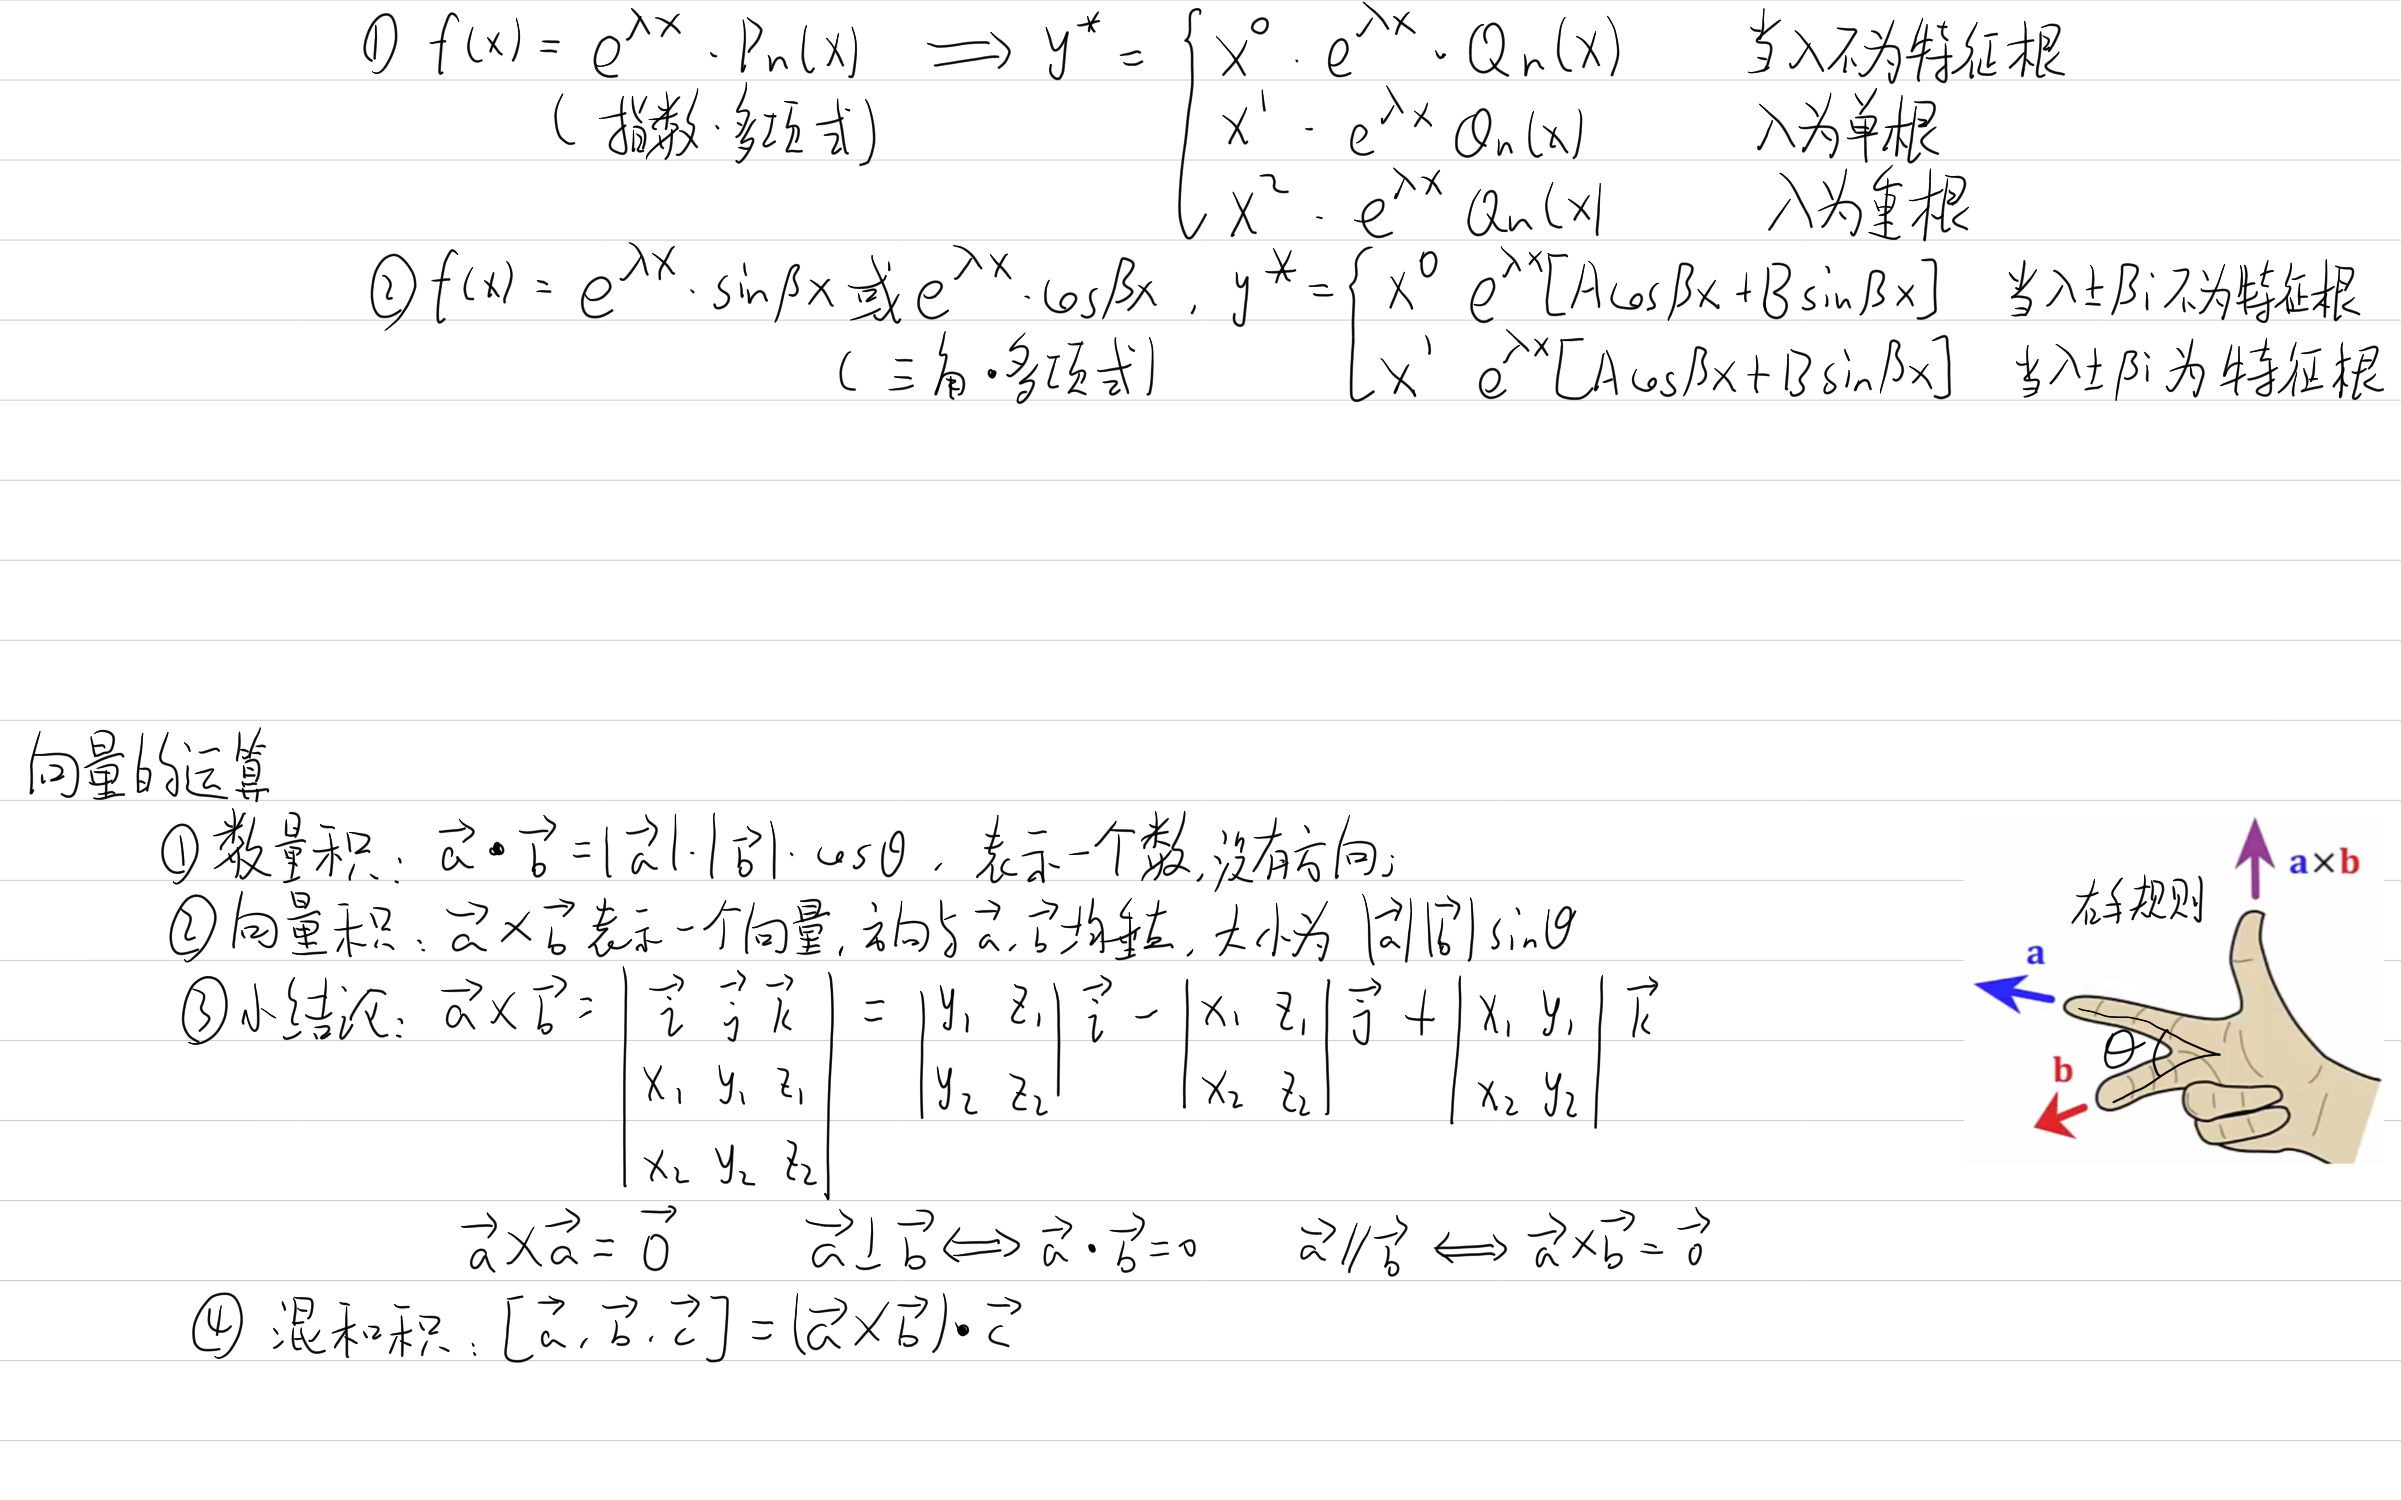 ① f(x) = e^{λx} · Pn(x) ⟹ y* = { x⁰ · e^{λx} · Qn(x) 当λ不为特征根
(指数·多项式) x¹ · e^{λx} Qn(x) λ为单根
x² · e^{λx} Qn(x) λ为重根
② f(x) = e^{λx} · sinβx 或 e^{λx} · cosβx , y* = { x⁰ e^{λx}[Acosβx+Bsinβx] 当λ±βi不为特征根
(三角·多项式) x¹ e^{λx}[Acosβx+Bsinβx] 当λ±βi为特征根
向量的运算
①数量积: a⃗•b⃗=|a⃗|·|b⃗|·cosθ, 表示一个数,没有方向;
②向量积: a⃗×b⃗表示一个向量,方向与a⃗,b⃗均垂直,大小为|a⃗||b⃗|sinθ
③小结论: a⃗×b⃗= | i⃗ j⃗ k⃗ | = | y₁ z₁ | i⃗ - | x₁ z₁ | j⃗ + | x₁ y₁ | k⃗
| x₁ y₁ z₁ | | y₂ z₂ | | x₂ z₂ | | x₂ y₂ |
| x₂ y₂ z₂ |
a⃗×a⃗=0⃗ a⃗⊥b⃗⟺a⃗·b⃗=0 a⃗∥b⃗⟺a⃗×b⃗=0⃗
④ 混和积: [a⃗,b⃗,c⃗]=(a⃗×b⃗)•c⃗
a×b
右手规则
a
θ
b